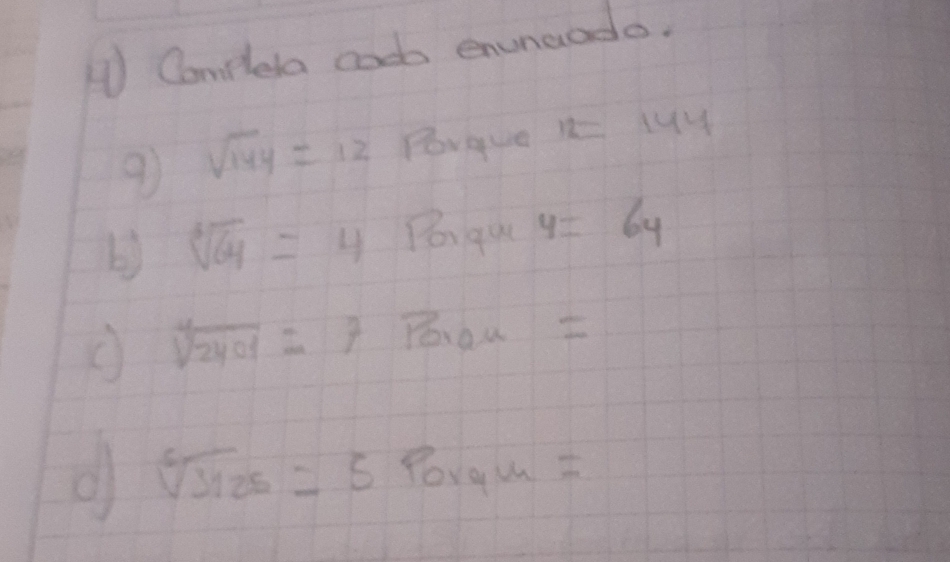 4) Completa cada enunciado.
a) √144 = 12 Porque 12= 144
b) ∛64 = 4 Porqu 4= 64
c) ∜2401 = 7 Porqu =
d) ⁵√3125 = 5 Porqu =